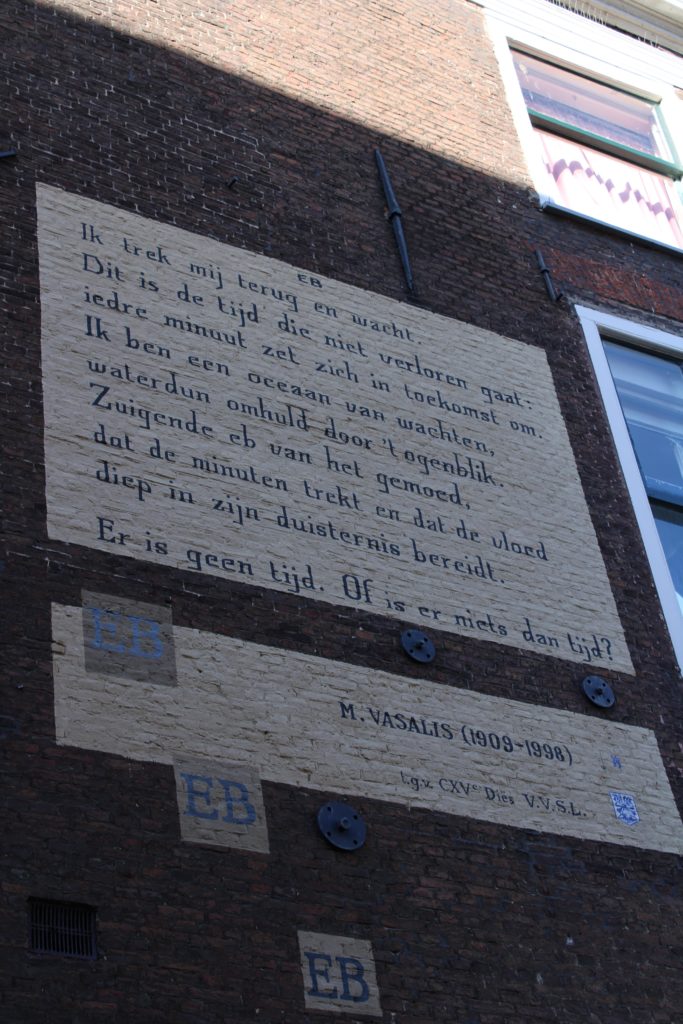 EB
Ik trek mij terug en wacht.
Dit is de tijd die niet verloren gaat:
iedre minuut zet zich in toekomst om.
Ik ben een oceaan van wachten,
waterdun omhuld door 't ogenblik.
Zuigende eb van het gemoed,
dat de minuten trekt en dat de vloed
diep in zijn duisternis bereidt.
Er is geen tijd. Of is er niets dan tijd?
EB
M. VASALIS (1909-1998)
t.g.v. CXVe Dies V.V.S.L.
EB
EB